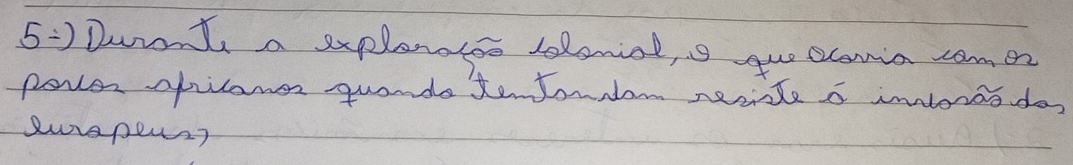 5-) Durante a exploração colonial, o que ocorria com os
povos africanos quando tentondam resiste á invlosão dos
europeus?